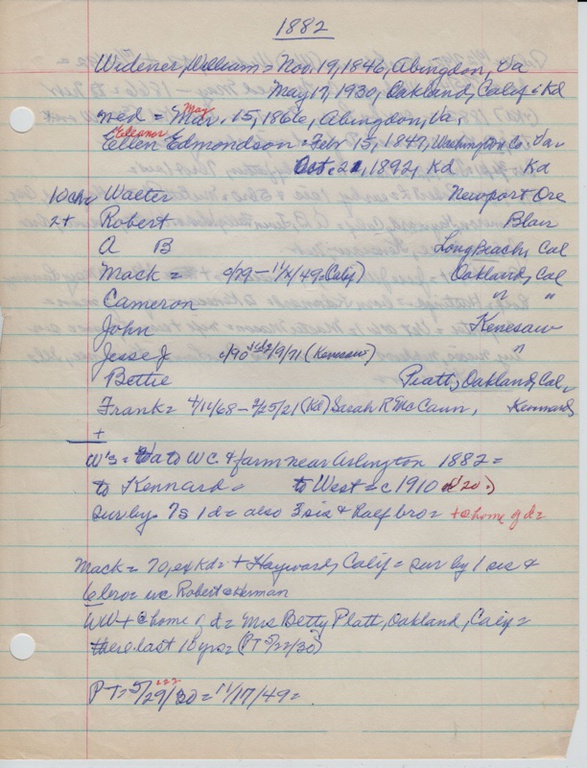 1882
Widener, William = Nov, 19, 1846, Abingdon, Va
May 17, 1930, Oakland, Calif = Kd
med = Mar. May 15, 1866, Abingdon, Va,
Ellen Eleanor Edmondson = Feb 15, 1847, Washington Co. Va
Oct. 21, 1892, Kd Kd
10 chn Walter Newport Ore
2 + Robert Blair
A B Long Beach, Cal
Mack = c/79 - 11/X/49 (Calif) Oakland, Cal
Cameron " "
John Kenesaw
Jesse J c/90 - 9/21 (Kenesaw) "
Bettie Piatt, Oakland, Cal,
Frank = 4/16/68 - /25/21 (Kd) Sarah R McCann, Kennard,
+
W's = Va to W C. & farm near Arlington 1882 =
to Kennard = to West = c 1910 ('20.)
sur by 7s 1 d = also 3 sis & half bro = + @ home of d =
Mack = 70, ex Kd = + Hayward, Calif = sur by 1 sis &
6 bro = wc Robert & Herman
WW + @ home of d = Mrs Betty Platt, Oakland, Calif =
there last 10 yrs = (P T 5/22/30)
P T = 5/29/30 = 11/17/49 =